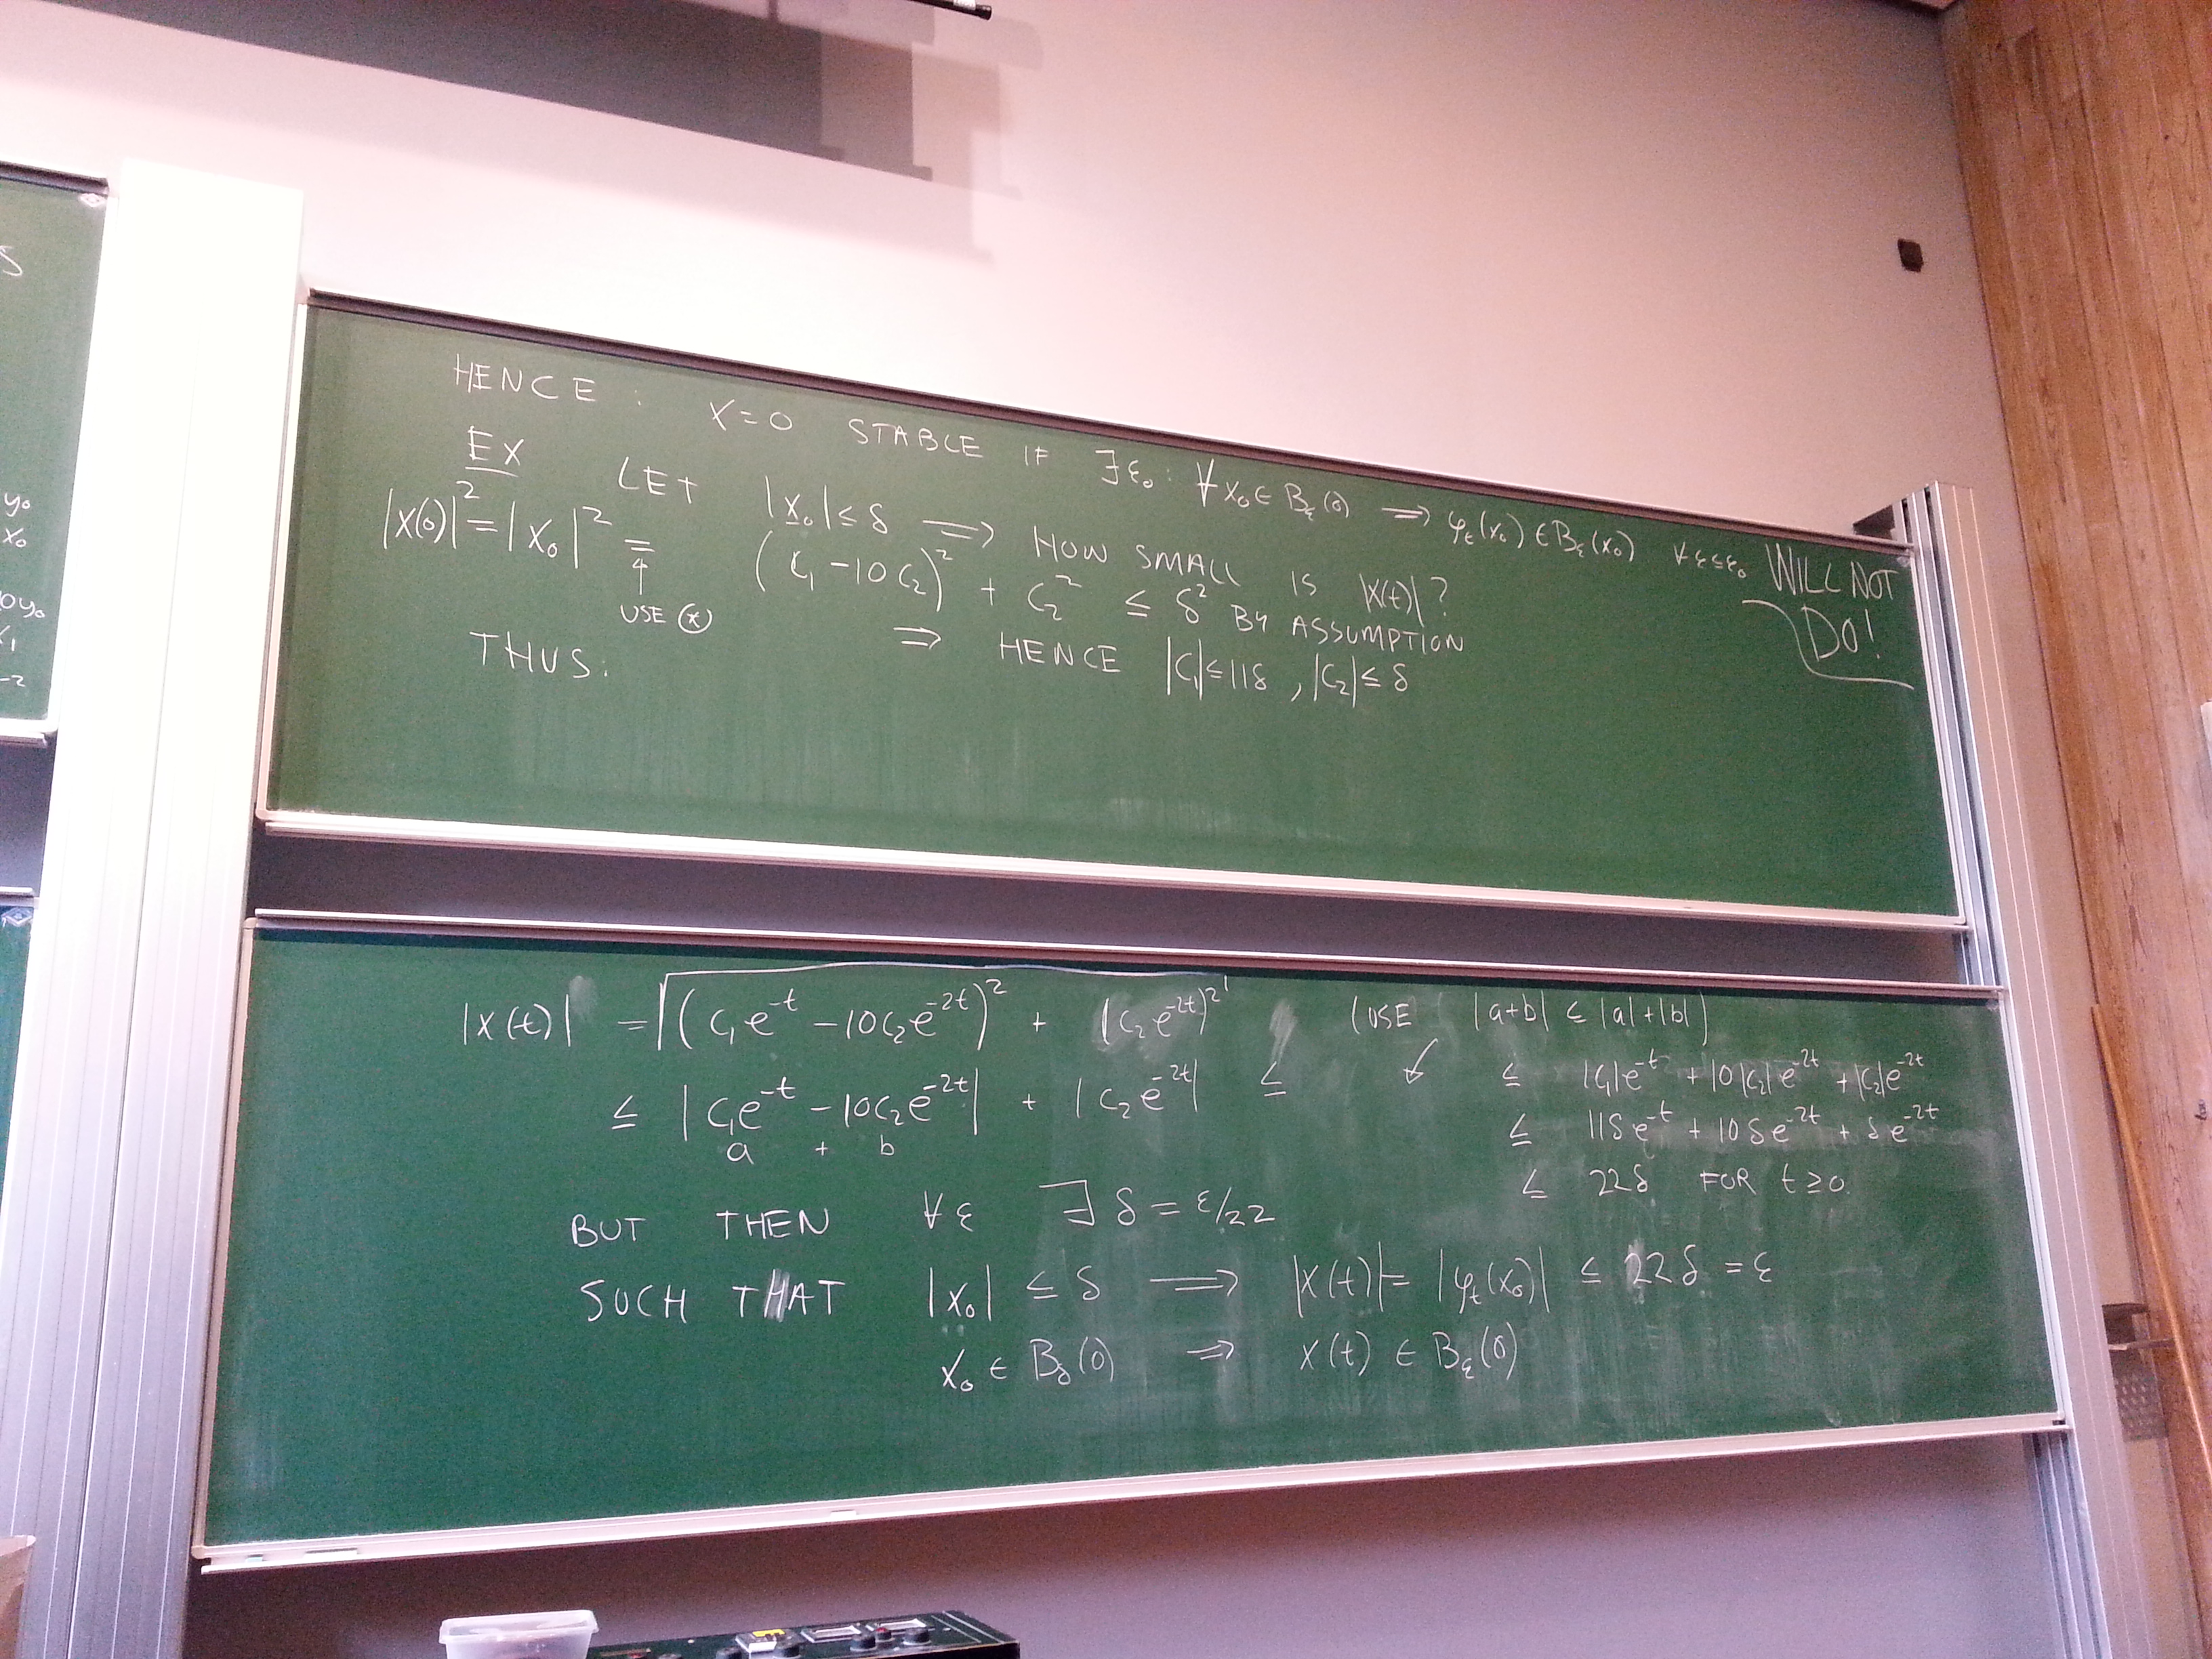 S
y₀
x₀
0y₀
-2
HENCE : X=0 STABLE IF ∃ε₀: ∀x₀∈B_ε(0) ⟹ φ_t(x₀)∈B_ε(x₀) ∀ε≤ε₀ WILL NOT DO!
EX LET |x₀|≤δ ⟹ HOW SMALL IS |X(t)|?
|X(0)|² = |X₀|² = (C₁-10C₂)² + C₂² ≤ δ² BY ASSUMPTION
USE (*)
THUS: ⇒ HENCE |C₁|≤11δ, |C₂|≤δ
|X(t)| = √((C₁e^{-t} - 10C₂e^{-2t})² + (C₂e^{-2t})²) (USE |a+b| ≤ |a|+|b|)
≤ |C₁e^{-t} - 10C₂e^{-2t}| + |C₂e^{-2t}| ≤ ≤ |C₁|e^{-t} + 10|C₂|e^{-2t} + |C₂|e^{-2t}
a + b
≤ 11δe^{-t} + 10δe^{-2t} + δe^{-2t}
≤ 22δ FOR t≥0.
BUT THEN ∀ε ∃ δ = ε/22
SUCH THAT |X₀| ≤ δ ⟹ |X(t)| = |φ_t(x₀)| ≤ 22δ = ε
X₀ ∈ B_δ(0) ⇒ X(t) ∈ B_ε(0)